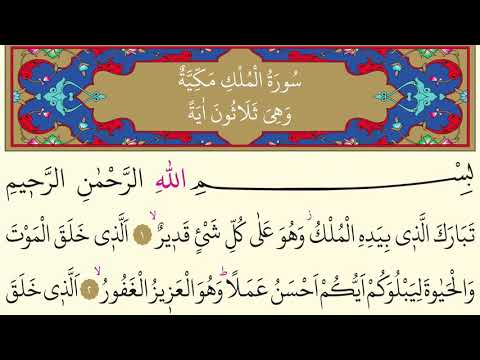 سُورَةُ الْمُلْكِ مَكِّيَّةٌ
وَهِىَ ثَلَاثُونَ اٰيَةً
بِسْمِ اللّٰهِ الرَّحْمٰنِ الرَّح۪يمِ
تَبَارَكَ الَّذ۪ي بِيَدِهِ الْمُلْكُۘ وَهُوَ عَلٰى كُلِّ شَيْءٍ قَد۪يرٌۙ ﴿١﴾ اَلَّذ۪ي خَلَقَ الْمَوْتَ
وَالْحَيٰوةَ لِيَبْلُوَكُمْ اَيُّكُمْ اَحْسَنُ عَمَلاًۜ وَهُوَ الْعَز۪يزُ الْغَفُورُۙ ﴿٢﴾ اَلَّذ۪ي خَلَقَ